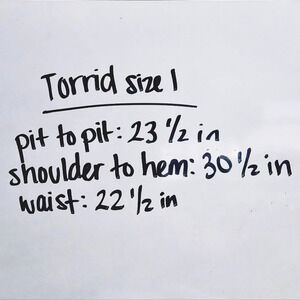 Torrid size 1
pit to pit: 23 1/2 in
shoulder to hem: 30 1/2 in
waist: 22 1/2 in